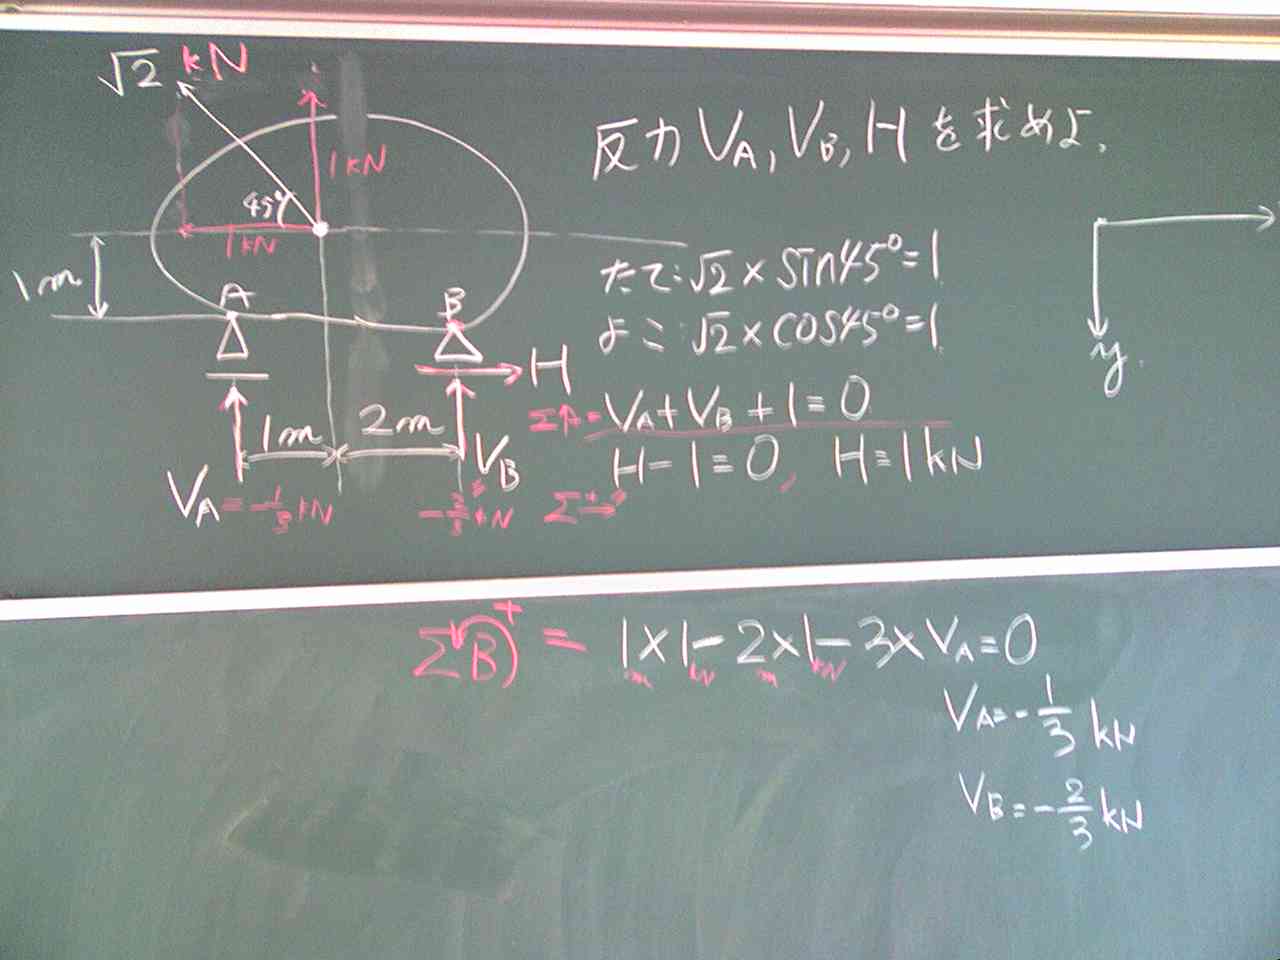 √2 kN
1kN
45°
1kN
1m
A
B
H
1m
2m
VA = -1/3 kN
VB
-2/3 kN
反力 VA, VB, H を求めよ.
たて:√2 × sin45°=1
よこ:√2 × cos45°=1
Σ↑= VA+VB+1=0
Σ→ H-1=0, H=1kN
y
ΣB)+ = 1×1-2×1-3×VA=0
m kN m kN
VA=-1/3 kN
VB=-2/3 kN